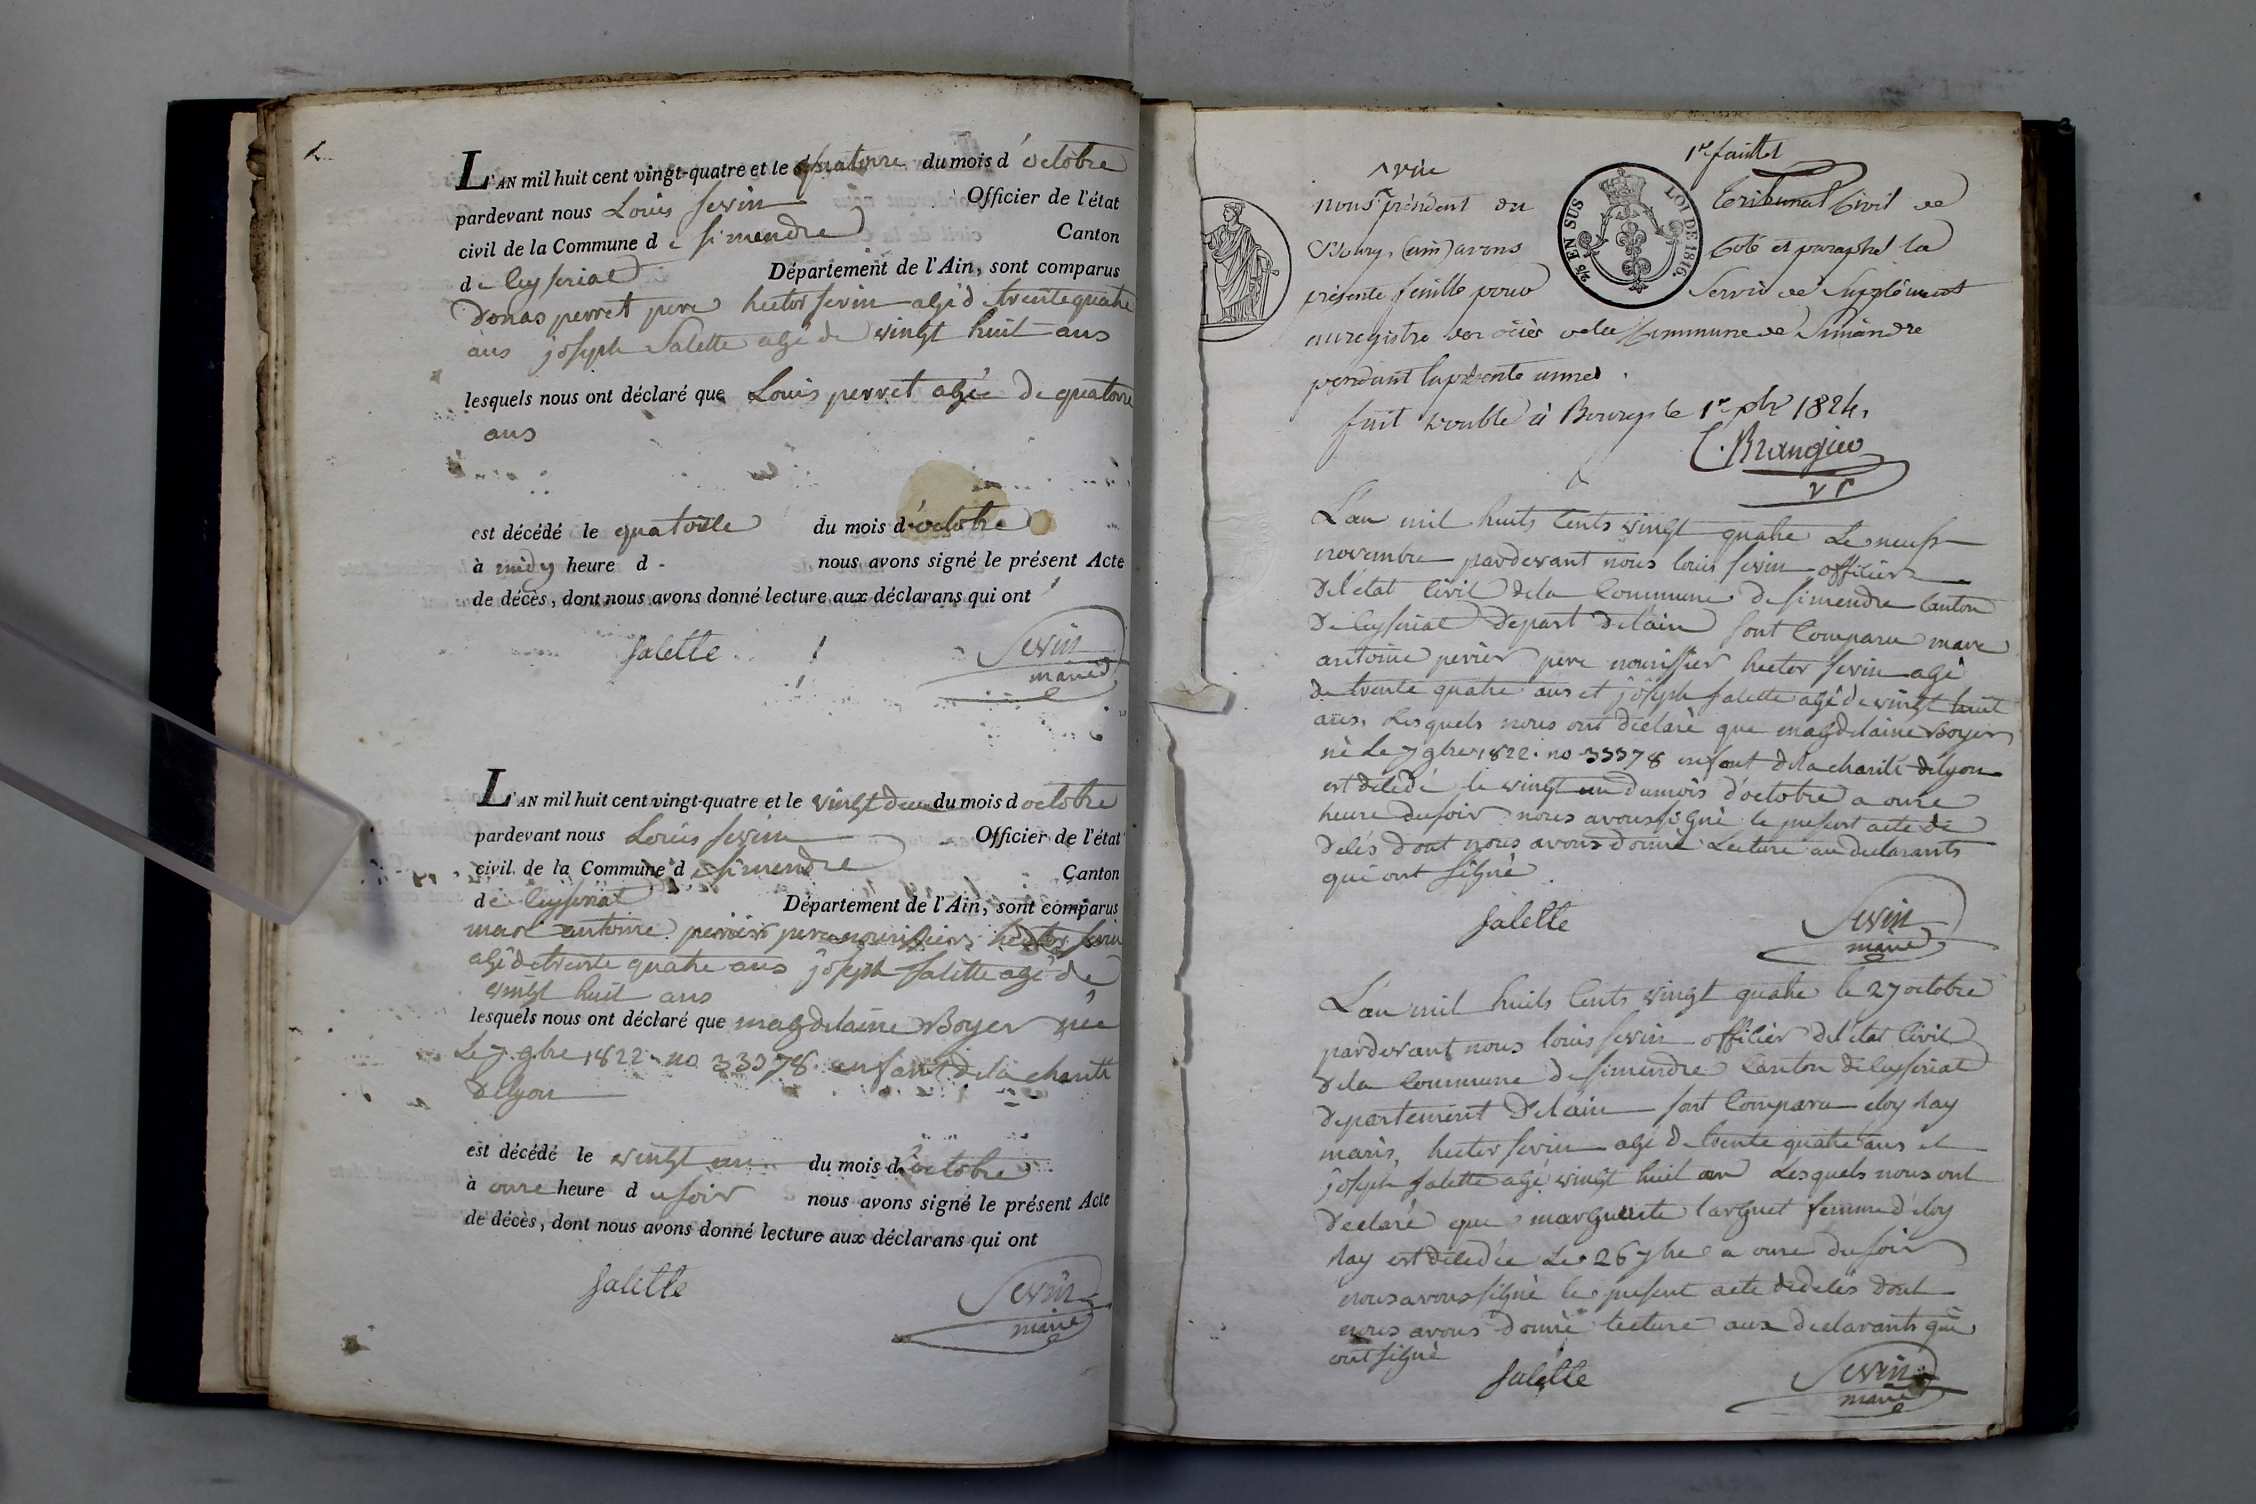 L'AN mil huit cent vingt-quatre et le quatorze du mois d'octobre
pardevant nous Louis sevin Officier de l'état
civil de la Commune de simendre Canton
de ceyseriat Département de l'Ain, sont comparus
Donas perret pere hector sevin agé d trente quatre
ans joseph Salette agé de vingt huit ans
lesquels nous ont déclaré que Louis perret agée de quatorze
ans
est décédé le quatorse du mois d'octobre
à midy heure d nous avons signé le présent Acte
de décès, dont nous avons donné lecture aux déclarans qui ont
Salette Sevin
maire
L'AN mil huit cent vingt-quatre et le vingt deux du mois d octobre
pardevant nous Louis sevin Officier de l'état
civil de la Commune de simendre Canton
de ceyseriat Département de l'Ain, sont comparus
marc antoine perrier pere nourissier, hector sevin
agé de trente quatre ans joseph salette agé de
vingt huit ans
lesquels nous ont déclaré que magdelaine Boyer née
Le 7 gbre 1822 no 33378 enfant dela charité
delyon
est décédé le vingt un du mois d'octobre
à onze heure du soir nous avons signé le présent Acte
de décès, dont nous avons donné lecture aux déclarans qui ont
Salette Sevin
maire
1er feuillet
vice
nous président du Tribunal Civil de
Bourg, (ain) avons Coté et paraphé la
25 EN SUS LOI DE 1816.
présente feuille pour Servir de Supplément
au registre des décès de la Commune de Simandre
pendant la présente année.
fait double à Bourg le 1er 9bre 1824.
C. Brangier
v p
L'an mil huits cents vingt quatre Le neuf
novembre pardevant nous louis sevin officier
del'état civil dela Commune de simendre canton
de ceyseriat depart delain sont Comparu marc
antoine perrier pere nourissier hector sevin agé
de trente quatre ans et joseph salette agé de vingt huit
ans. Lesquels nous ont déclaré que magdelaine Boyer
né Le 7 gbre 1822. no 33378 enfant dela charité delyon
est décédé le vingt un dumois d'octobre a onze
heure dusoir nous avons signé le present acte de
décés dont nous avons donné Lecture au declarants
qui ont signé
Salette Sevin
maire
L'an mil huits cents vingt quatre le 27 octobre
pardevant nous louis sevin officier del'état Civil
dela Commune de simendre Canton de ceyseriat
departement Delain sont Comparu eloy hay
maris, hector sevin agé de trente quatre ans et
joseph salette agé vingt huit an Lesquels nous ont
declaré que marguerite larguet femme d'eloy
hay est décédée Le 26 7bre a onze du soir
nous avons signé le present acte de deces dont
nous avons donné lecture aux declarants qui
ont signé
Salette Sevin
maire